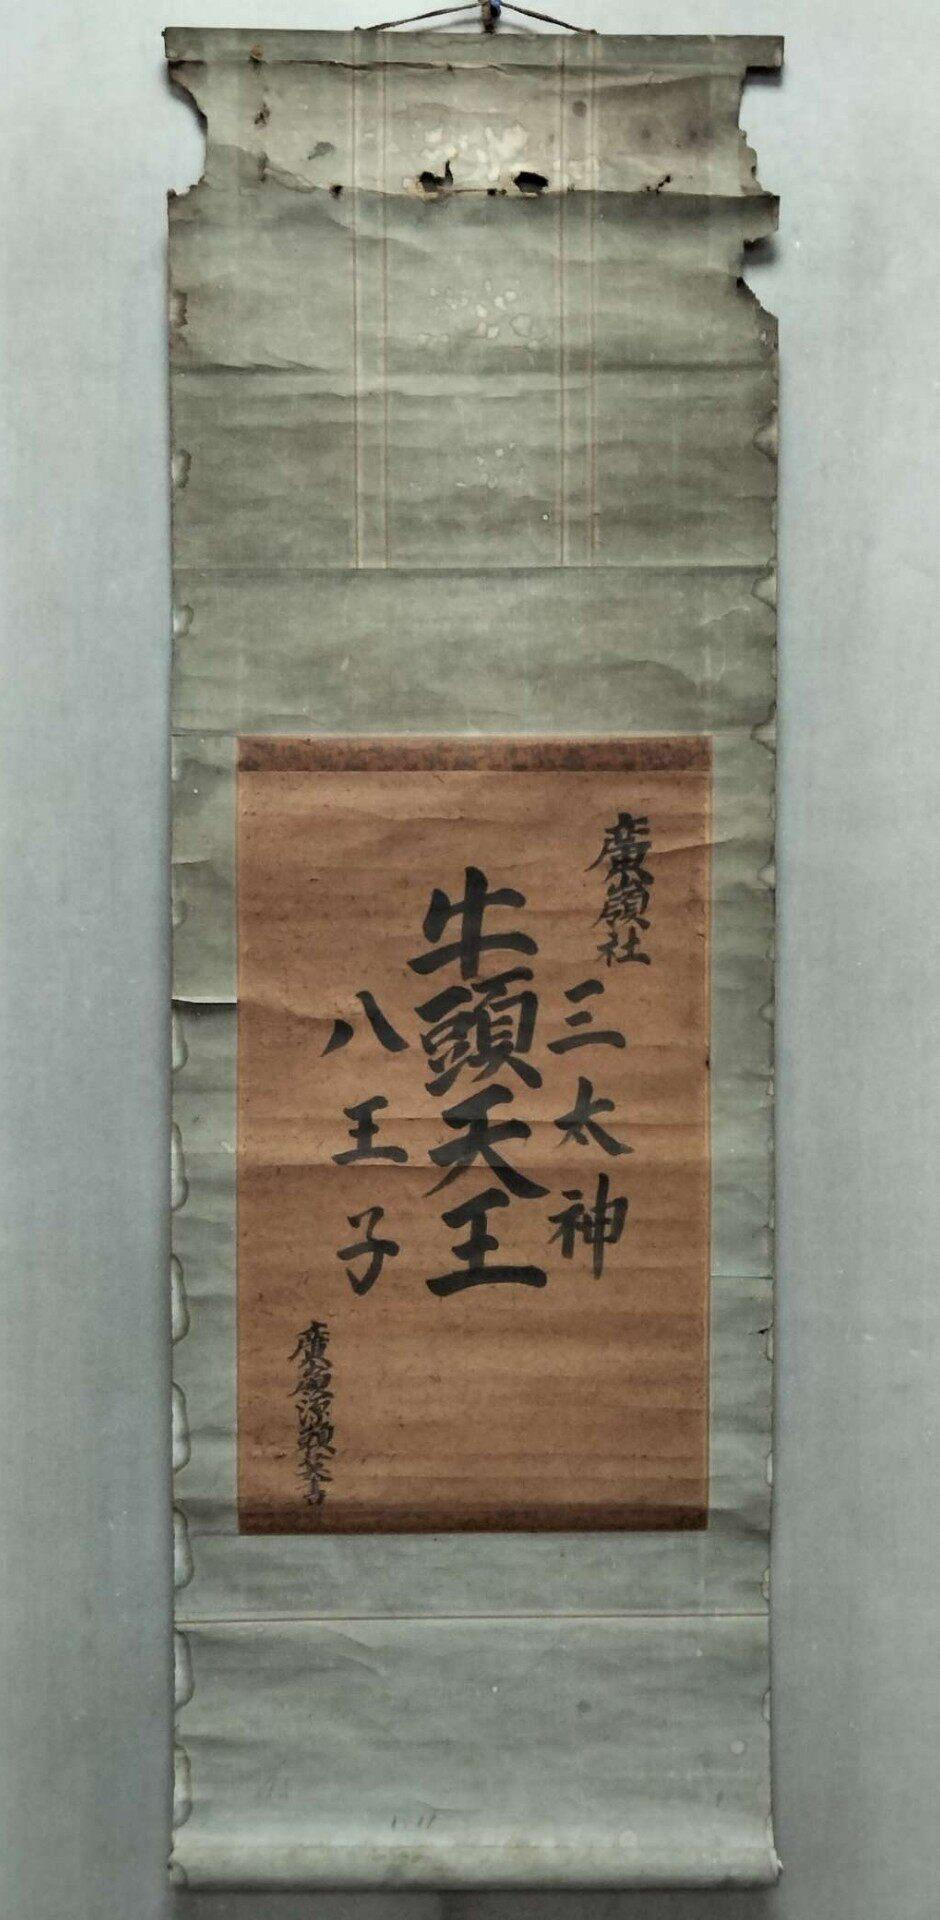 廣嶺社
三太神
牛頭天王
八王子
廣嶺源頼英書